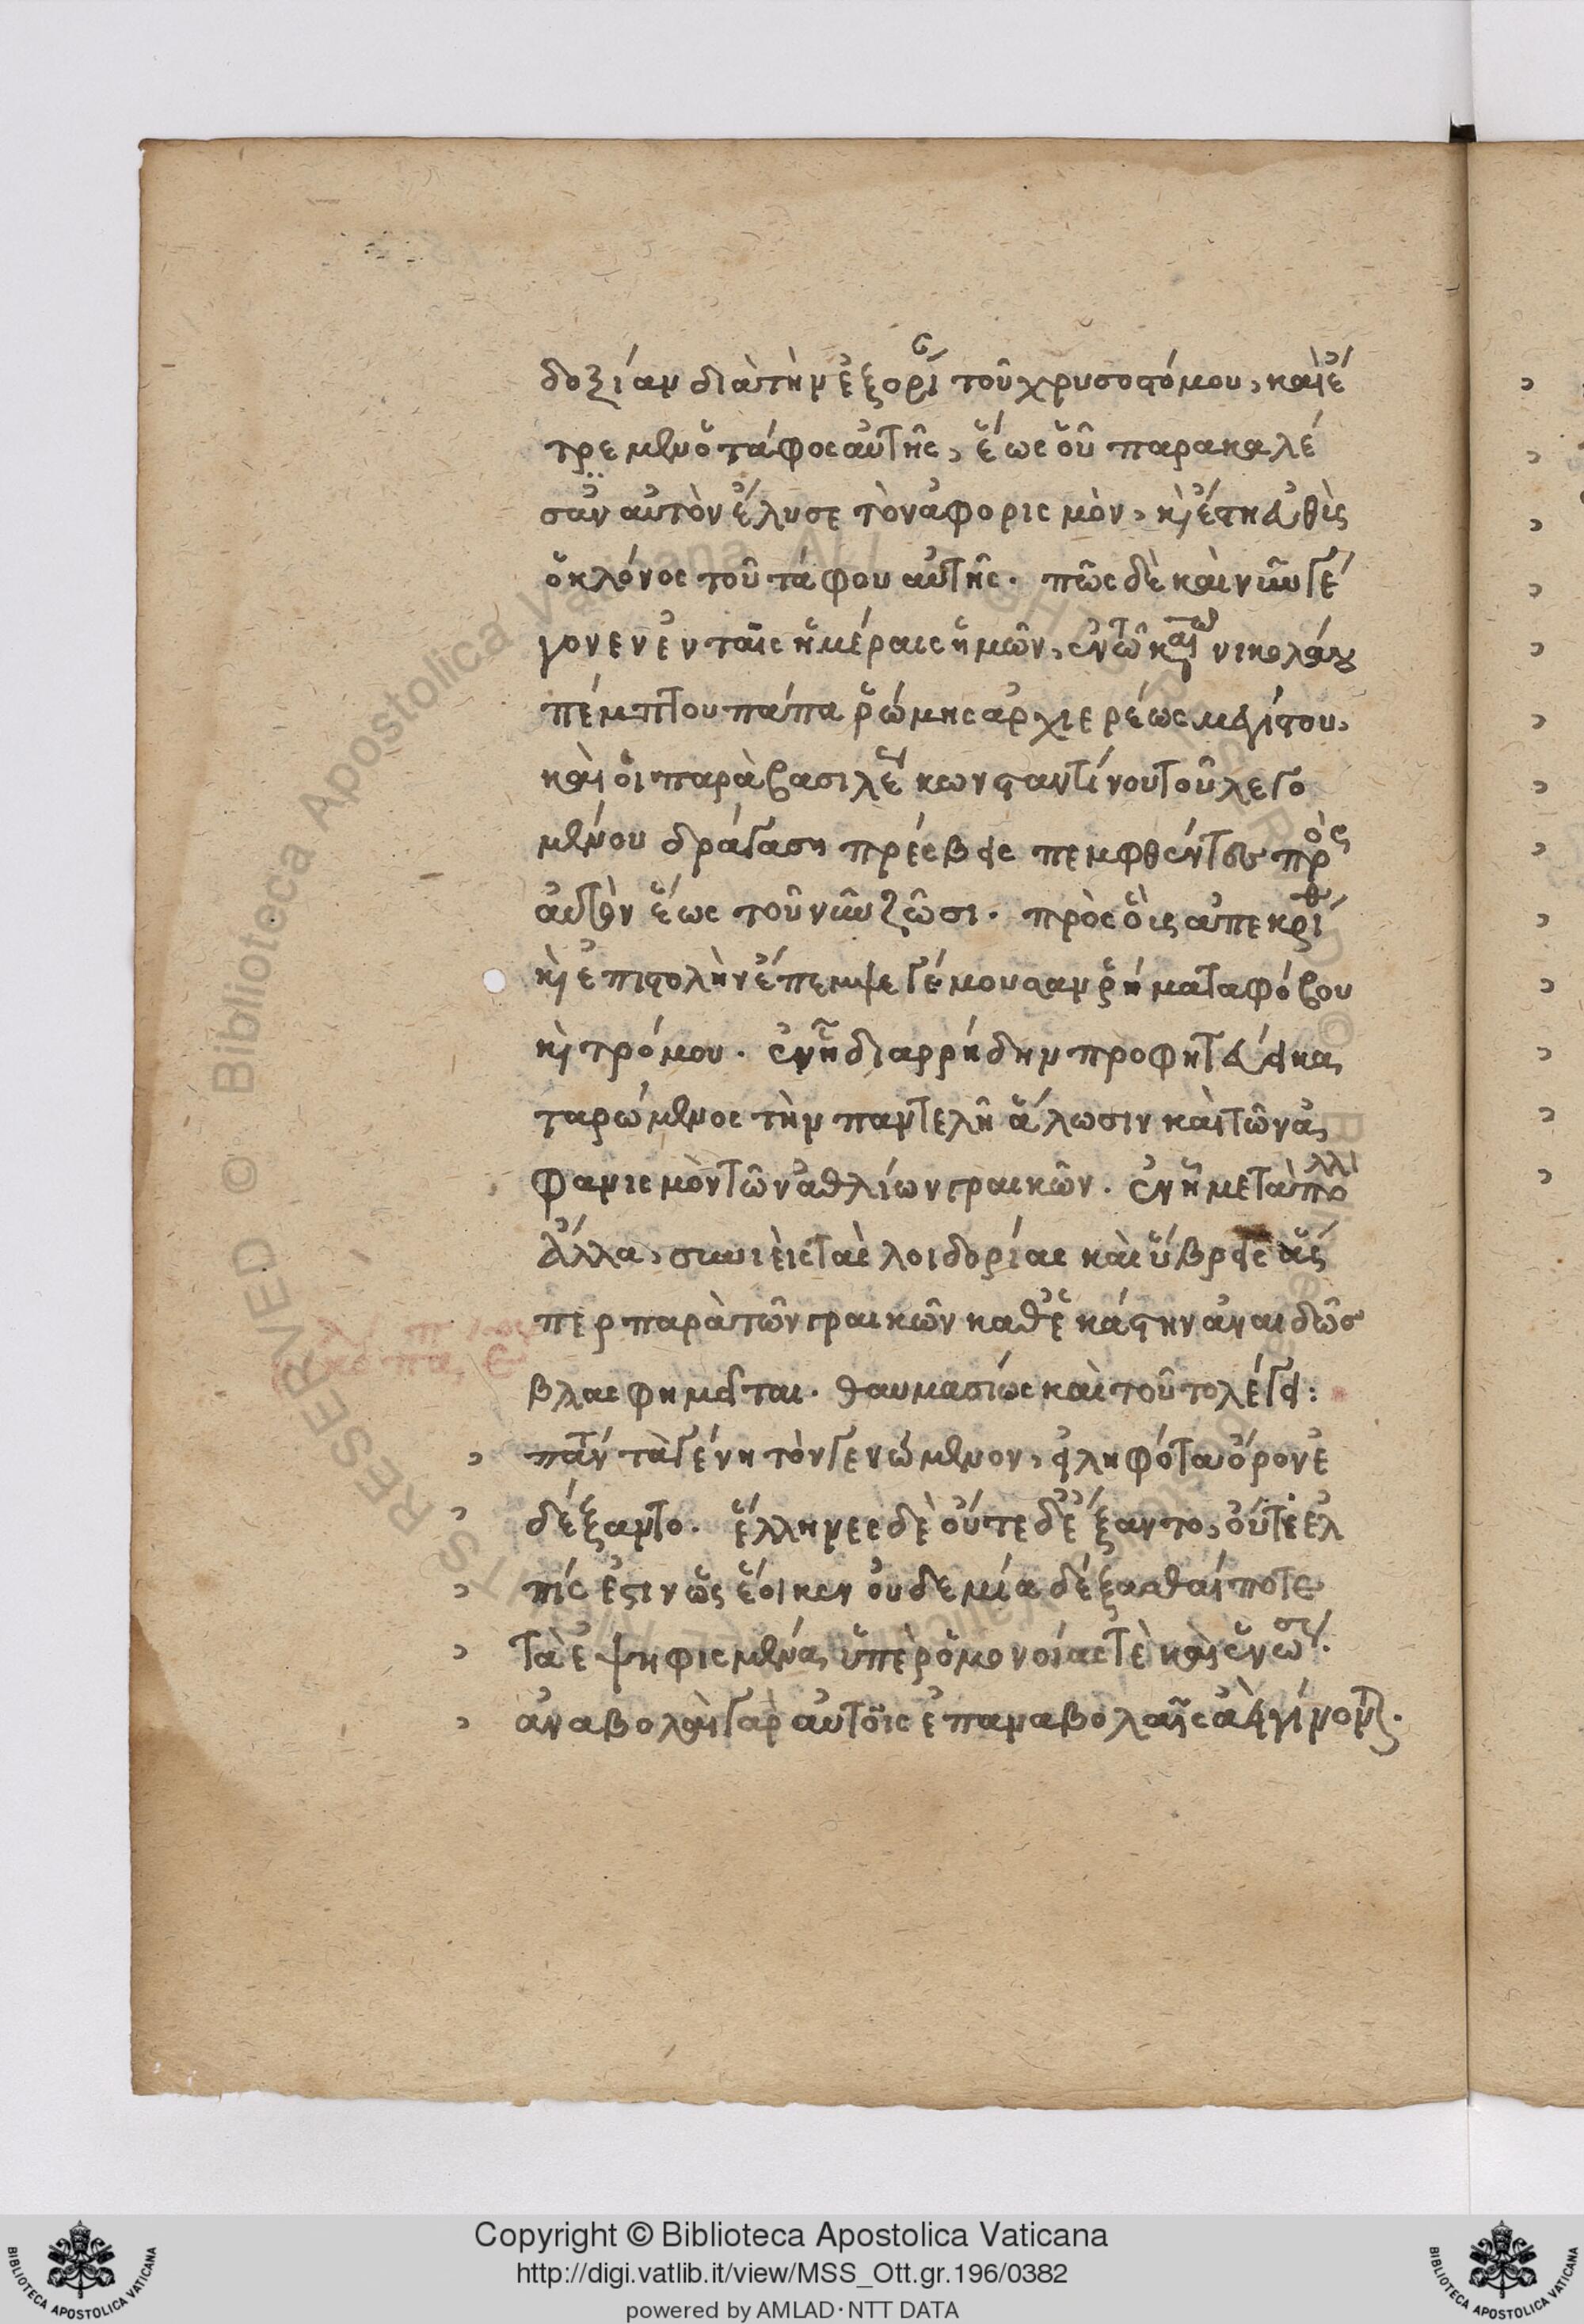 δοξίαν διὰ τὴν ἐξορί τοῦ χρυσοστόμου, καὶ ἔ
τρεμεν ὁ τάφος αὐτῆς, ἕως οὗ παρακαλέ
σαν αὐτὸν ἔλυσε τὸν ἀφορισμὸν, κὶ ἔστη εὐθὺς
ὁ κλόνος τοῦ τάφου αὐτῆς. πῶς δὲ καὶ νῦν γέ
γονεν ἐν ταῖς ἡμέραις ἡμῶν, ἐν τῶ καιρῶ νικολάου
πέμπτου πάπα ῥώμης ἀρχιερέως μεγίστου,
καὶ οἱ παρὰ βασιλέως κωνσταντίνου τοῦ λεγο
μένου δράγαση πρέσβεις πεμφθέντες πρὸς
αὐτὸν ἕως τοῦ νῦν ζῶσι. πρὸς οὓς ἀπεκρίθ
κὶ ἐπιστολὴν ἔπεμψε γέμουσαν ῥήματα φόβου
κὶ τρόμου. ἐν ᾗ διαρρήδην προφητεύει κα
ταρώμενος τὴν παντελῆ ἅλωσιν καὶ τῶν ἀ
φανισμὸν τῶν ἀθλίων γραικῶν. ἐν ᾗ μετὰ πολλὰ
ἄλλα, συνιεὶς τὰς λοιδορίας καὶ ὕβρεις ἅς
περ παρὰ τῶν γραικῶν καθ ἑκάστην ἀναιδῶς
βλασφημεῖται. θαυμασίως καὶ τοῦτο λέγει:
πάντα τὰ γένη τὸν γενώμενον, εἰληφότα ὅρον ἐ
δέξαντο. ἕλληνες δὲ οὔτε δέξαντο, οὔτε ἐλ
πίς ἐστιν ὡς ἔοικεν οὐδεμία δέξασθαί ποτε
τὰ ἐψηφισμένα ὑπὲρ ὁμονοίας τὲ καὶ ἑνώσ.
ἀναβολαὶ γὰρ αὐτοῖς ἐπαναβολαῖς ἀεὶ γίνονται.
Copyright © Biblioteca Apostolica Vaticana
http://digi.vatlib.it/view/MSS_Ott.gr.196/0382
powered by AMLAD·NTT DATA